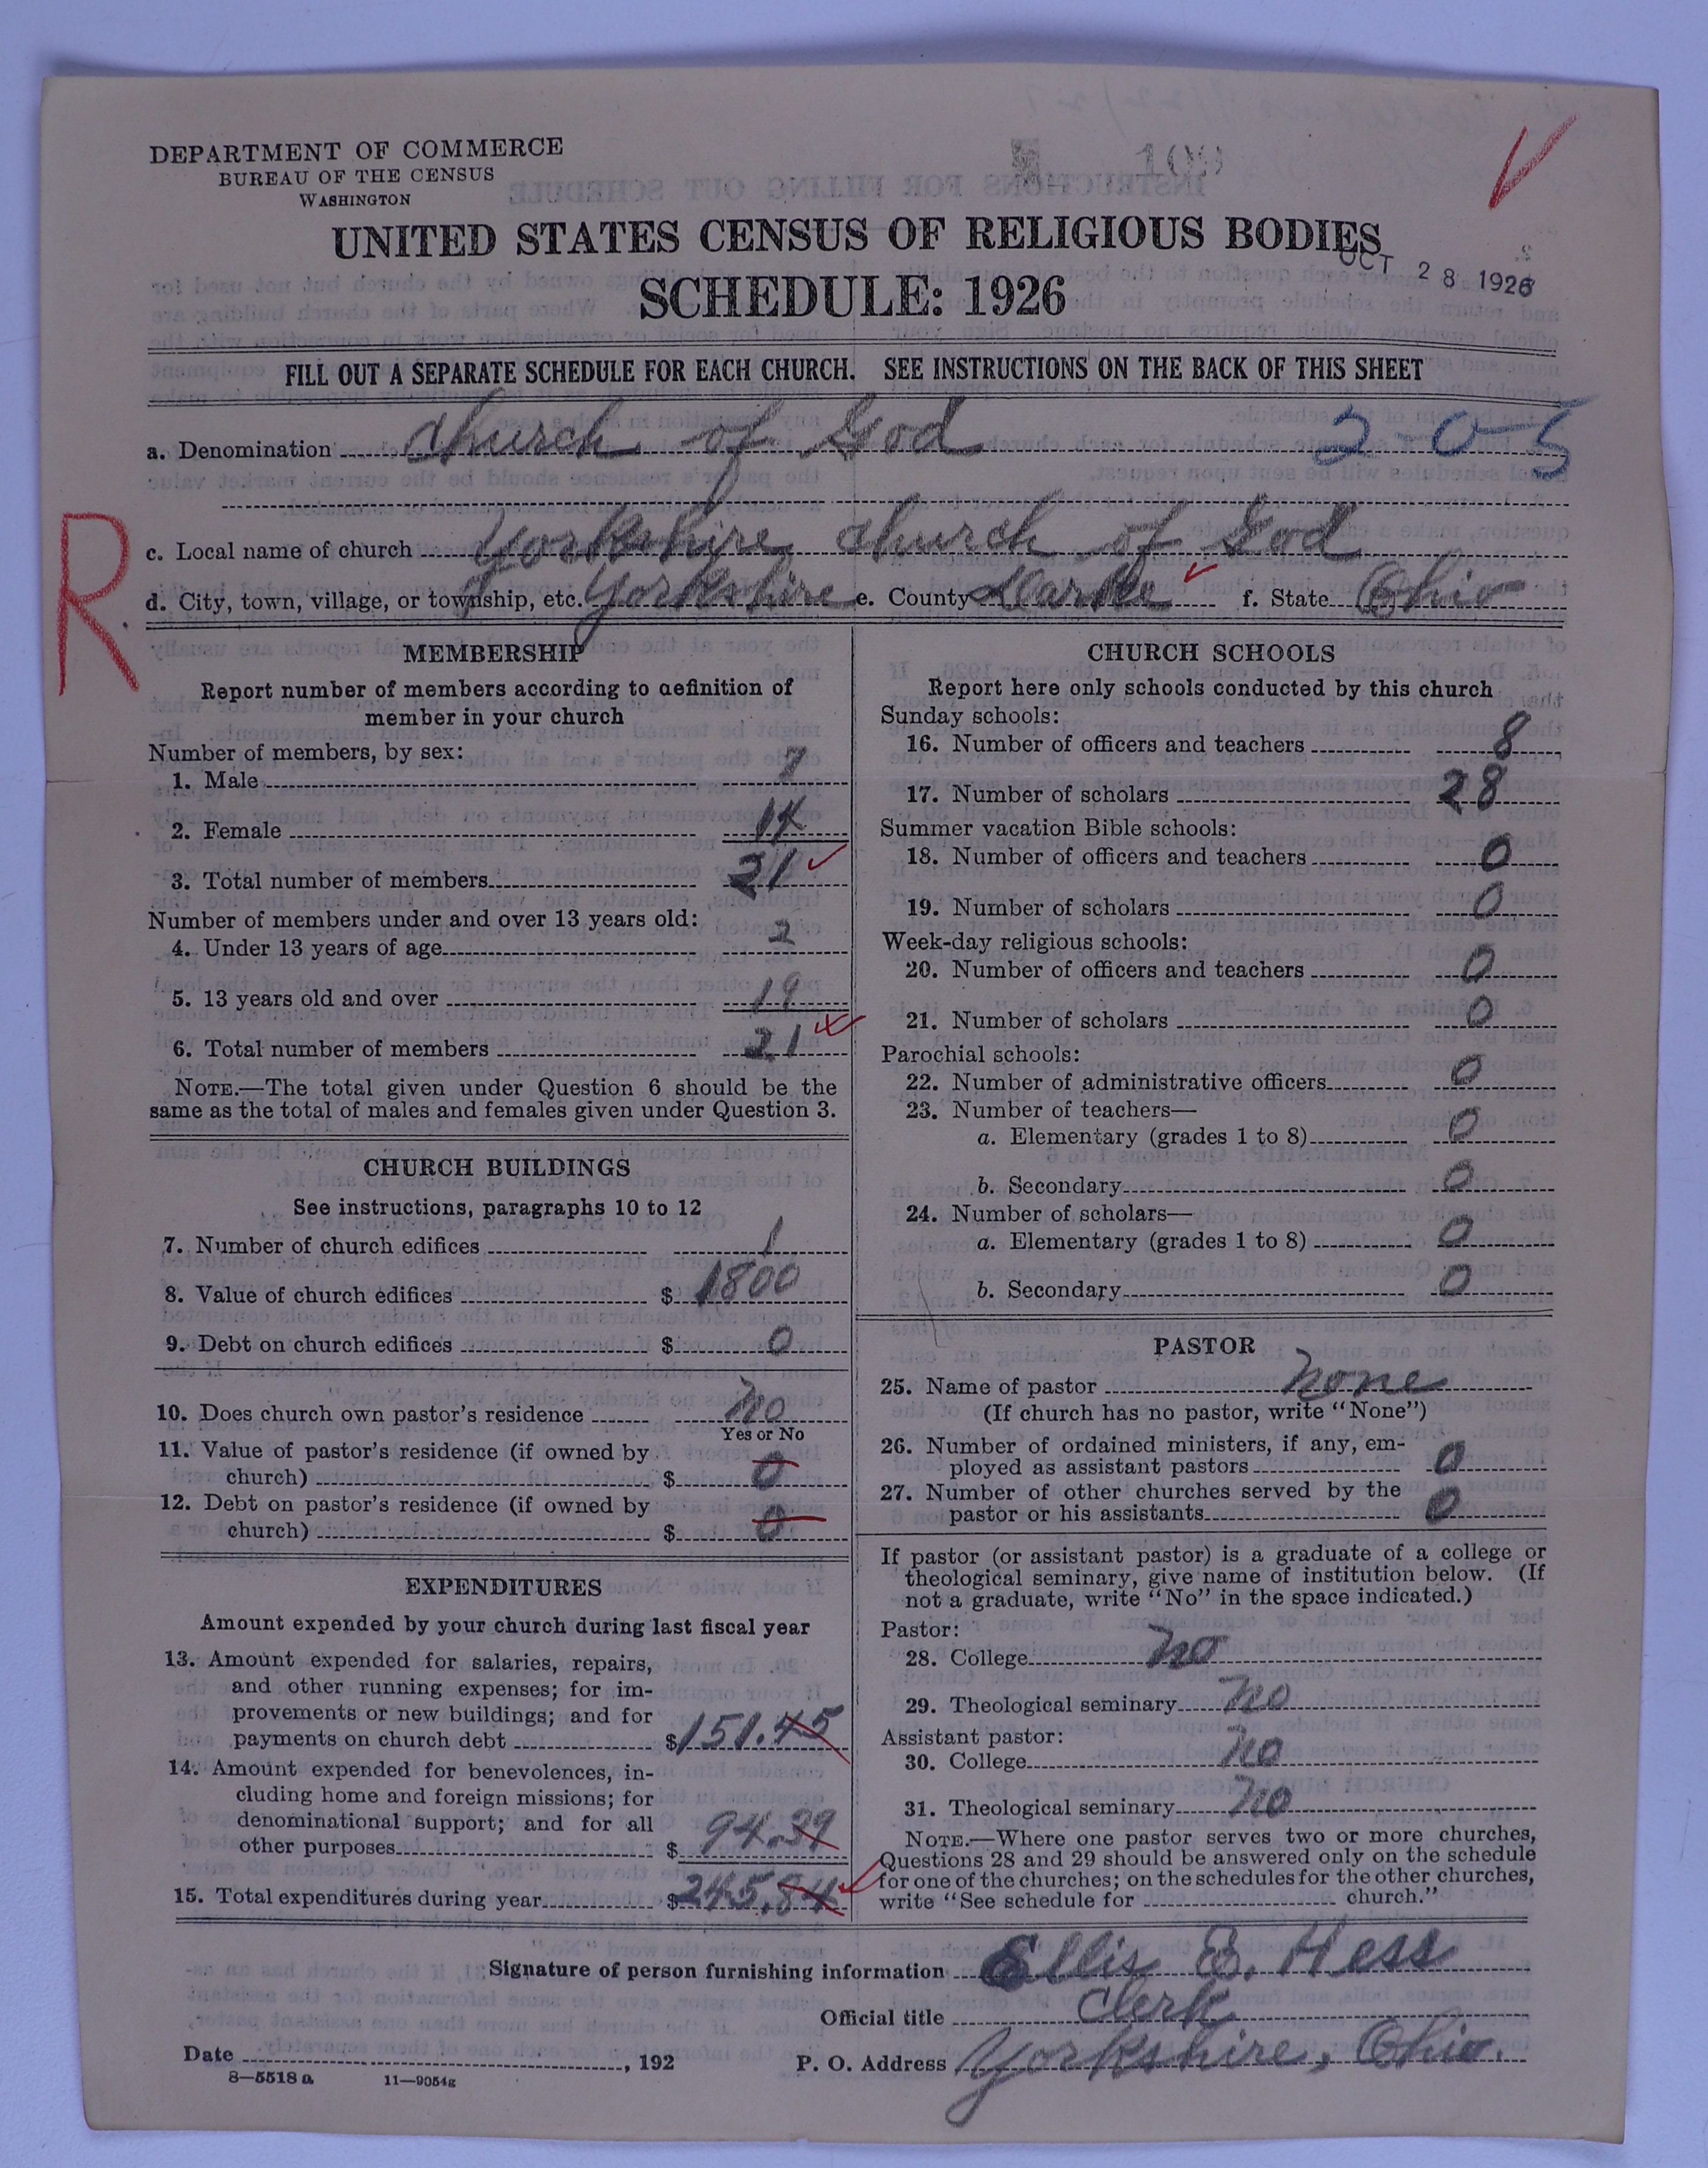 DEPARTMENT OF COMMERCE
BUREAU OF THE CENSUS
WASHINGTON
UNITED STATES CENSUS OF RELIGIOUS BODIES
OCT 28 1926
SCHEDULE: 1926
FILL OUT A SEPARATE SCHEDULE FOR EACH CHURCH. SEE INSTRUCTIONS ON THE BACK OF THIS SHEET
a. Denomination Church of God 2-0-5
R
c. Local name of church Yorkshire Church of God
d. City, town, village, or township, etc. Yorkshire e. County Darke f. State Ohio
MEMBERSHIP
Report number of members according to definition of
member in your church
Number of members, by sex:
1. Male 7
2. Female 14
3. Total number of members 21
Number of members under and over 13 years old:
4. Under 13 years of age 2
5. 13 years old and over 19
6. Total number of members 21
NOTE.—The total given under Question 6 should be the
same as the total of males and females given under Question 3.
CHURCH BUILDINGS
See instructions, paragraphs 10 to 12
7. Number of church edifices 1
8. Value of church edifices $ 1800
9. Debt on church edifices $ 0
10. Does church own pastor's residence No
Yes or No
11. Value of pastor's residence (if owned by
church) $ 0
12. Debt on pastor's residence (if owned by
church) $ 0
EXPENDITURES
Amount expended by your church during last fiscal year
13. Amount expended for salaries, repairs,
and other running expenses; for im-
provements or new buildings; and for
payments on church debt $ 151.45
14. Amount expended for benevolences, in-
cluding home and foreign missions; for
denominational support; and for all
other purposes $ 94.39
15. Total expenditures during year $ 245.84
CHURCH SCHOOLS
Report here only schools conducted by this church
Sunday schools:
16. Number of officers and teachers 8
17. Number of scholars 28
Summer vacation Bible schools:
18. Number of officers and teachers 0
19. Number of scholars 0
Week-day religious schools:
20. Number of officers and teachers 0
21. Number of scholars 0
Parochial schools:
22. Number of administrative officers 0
23. Number of teachers—
a. Elementary (grades 1 to 8) 0
b. Secondary 0
24. Number of scholars—
a. Elementary (grades 1 to 8) 0
b. Secondary 0
PASTOR
25. Name of pastor None
(If church has no pastor, write "None")
26. Number of ordained ministers, if any, em-
ployed as assistant pastors 0
27. Number of other churches served by the
pastor or his assistants 0
If pastor (or assistant pastor) is a graduate of a college or
theological seminary, give name of institution below. (If
not a graduate, write "No" in the space indicated.)
Pastor:
28. College No
29. Theological seminary No
Assistant pastor:
30. College No
31. Theological seminary No
NOTE.—Where one pastor serves two or more churches,
Questions 28 and 29 should be answered only on the schedule
for one of the churches; on the schedules for the other churches,
write "See schedule for church."
Signature of person furnishing information Ellis E. Hess
Official title Clerk
Date , 192 P. O. Address Yorkshire, Ohio.
8—5518 a 11—9054g